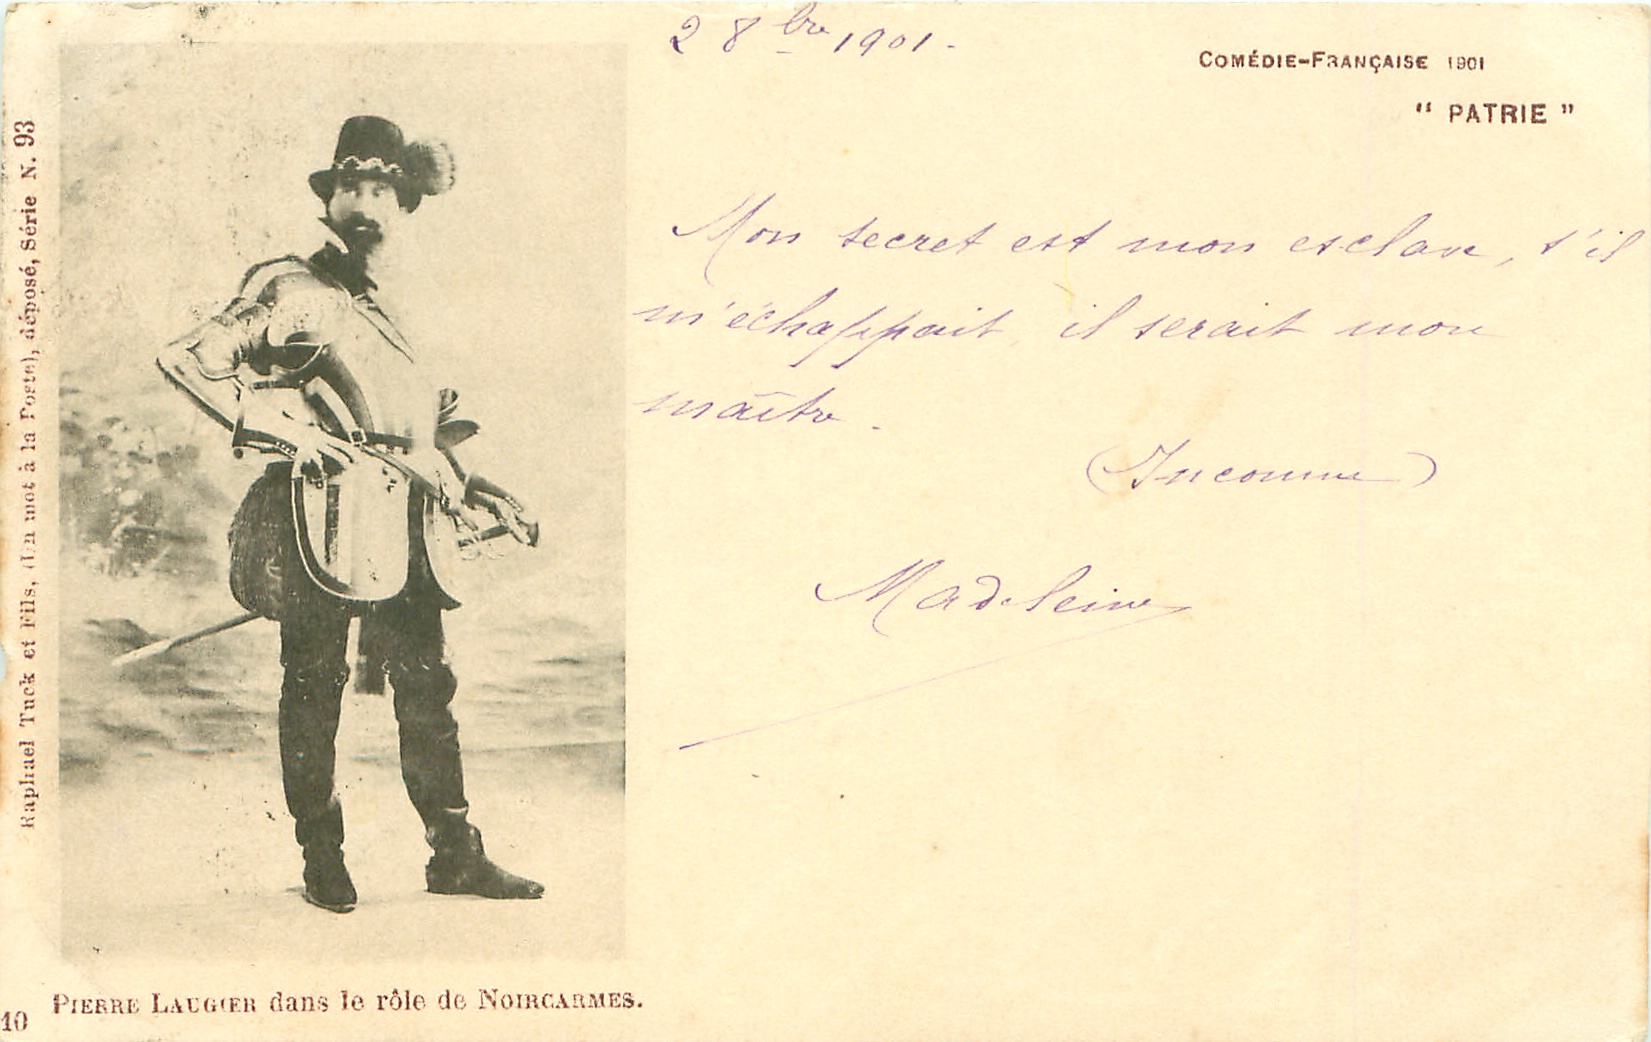 2 8bre 1901.
COMÉDIE-FRANÇAISE 1901
" PATRIE "
Mon secret est mon esclave, s'il
m'échappait, il serait mon
maître.
(Inconnu)
Madeleine
Raphael Tuck et Fils, (Un mot à la Poste), déposé, Série N. 93
PIERRE LAUGIER dans le rôle de NOIRCARMES.
10